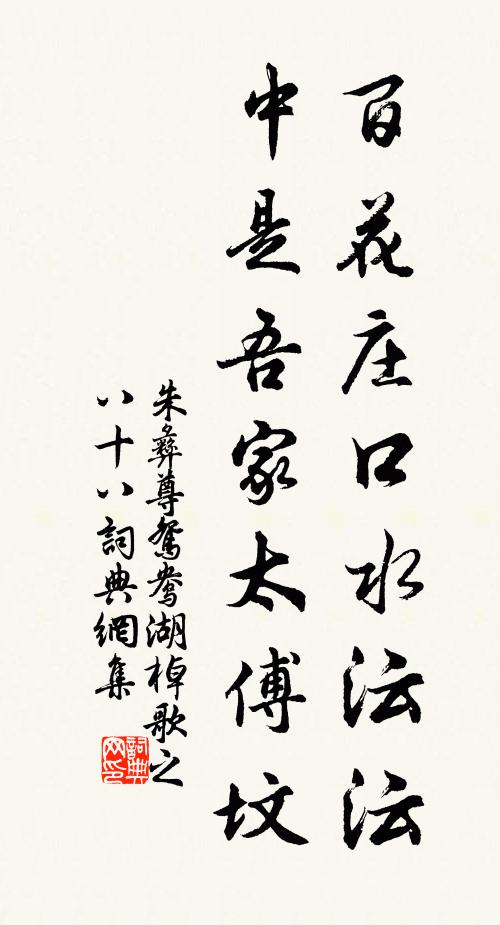 百花庄口水沄沄
中是吾家太傅坟
朱彝尊鴛鴦湖棹歌之
八十八詞典網集
詞典
网印